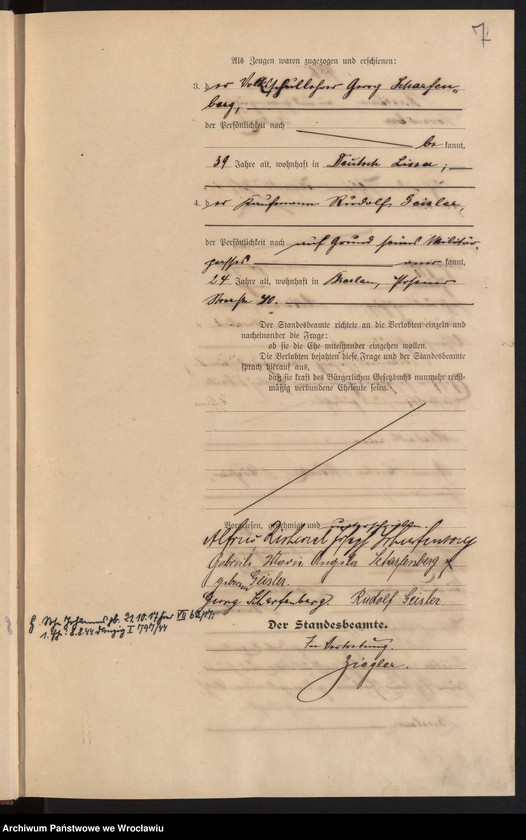 7
Als Zeugen waren zugezogen und erschienen:
3. der Volksschullehrer Georg Scharfen-
berg,
der Persönlichkeit nach
be kannt,
39 Jahre alt, wohnhaft in Deutsch Lissa;
4. der Kaufmann Rudolf Geisler,
der Persönlichkeit nach auf Grund seines Militär-
passes aner kannt,
24 Jahre alt, wohnhaft in Breslau, Posener
Strasse 40.
Der Standesbeamte richtete an die Verlobten einzeln und
nacheinander die Frage:
ob sie die Ehe miteinander eingehen wollen.
Die Verlobten bejahten diese Frage und der Standesbeamte
sprach hierauf aus,
daß sie kraft des Bürgerlichen Gesetzbuchs nunmehr recht-
mäßig verbundene Eheleute seien.
Vorgelesen, genehmigt und unterschrieben
Alfred Richard Josef Scharfenberg
Gabriele Maria Angela Scharfenberg
geborene Geisler.
Georg Scharfenberg. Rudolf Geisler
Johannes gb. 21.10.17
1. 8.8.44 Danzig I 797/44
Der Standesbeamte.
In Vertretung.
Ziegler.
Archiwum Państwowe we Wrocławiu